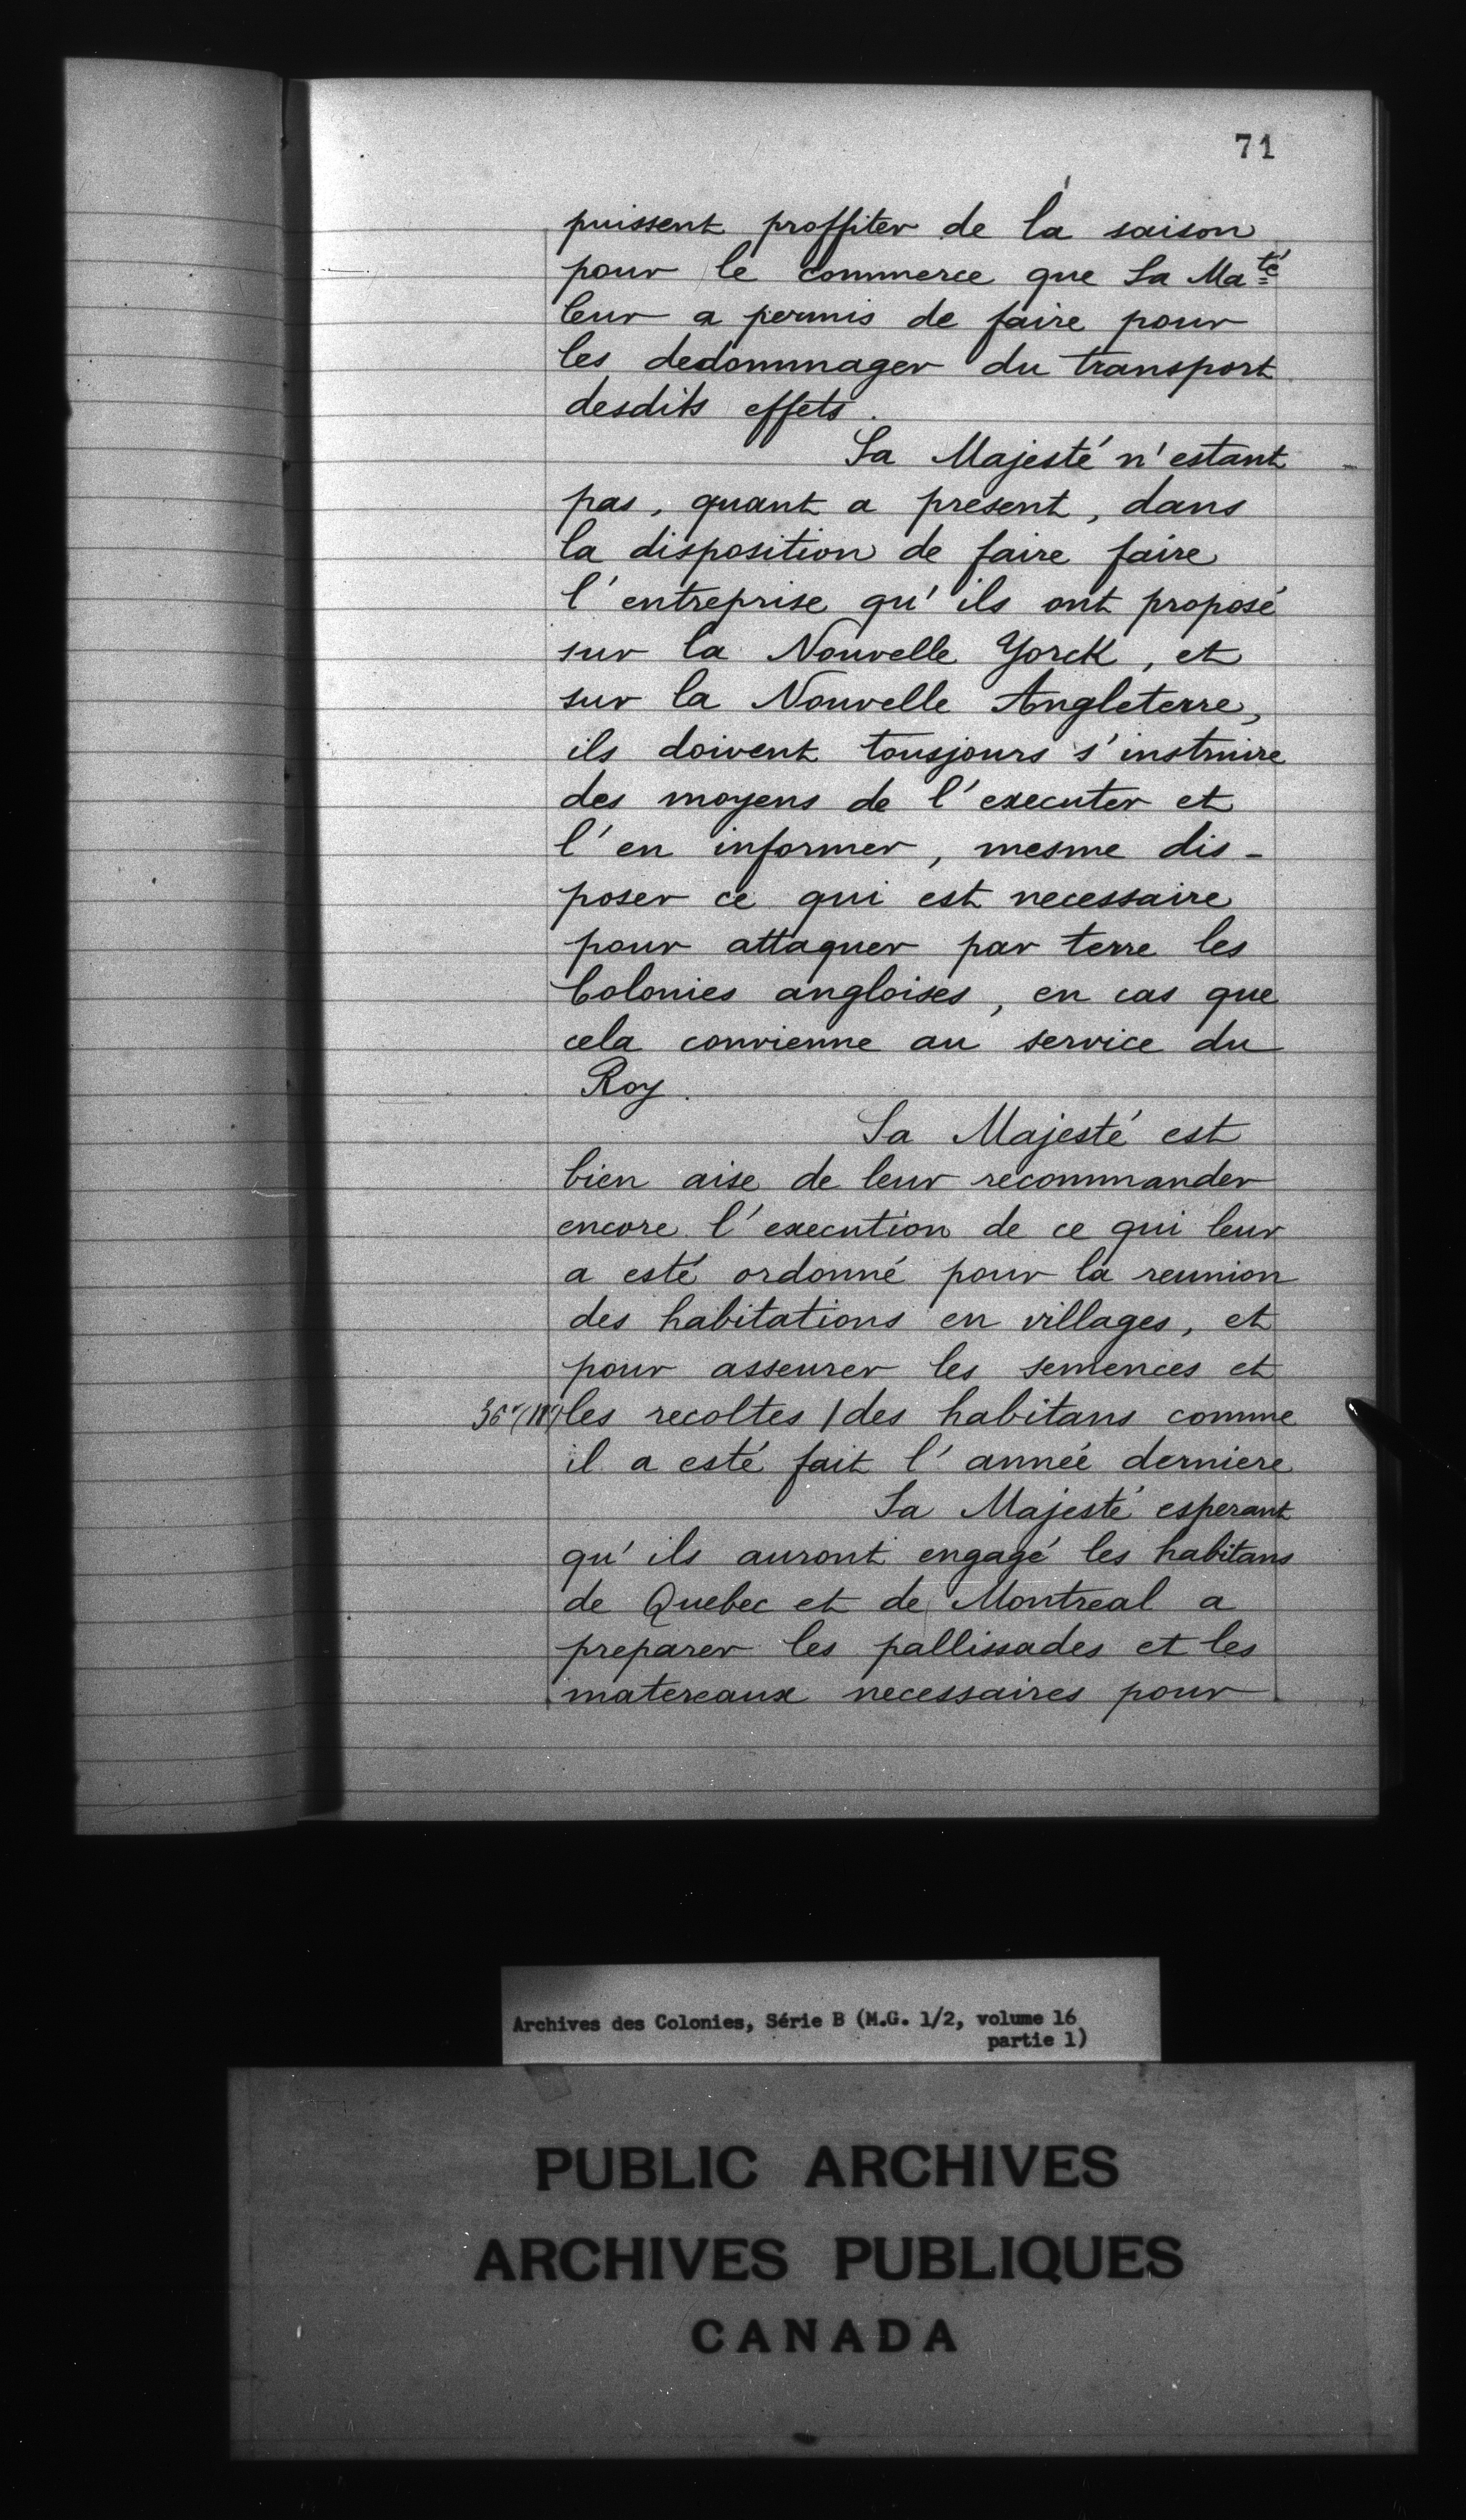 71
puissent proffiter de la saison
pour le commerce que Sa Ma.té
leur a permis de faire pour
les dedommager du transport
desdits effets.
Sa Majesté n'estant
pas, quant a present, dans
la disposition de faire faire
l'entreprise qu'ils ont proposé
sur la Nouvelle Yorck, et
sur la Nouvelle Angleterre,
ils doivent tousjours s'instruire
des moyens de l'executer et
l'en informer, mesme dis-
poser ce qui est necessaire
pour attaquer par terre les
Colonies angloises, en cas que
cela convienne au service du
Roy.
Sa Majesté est
bien aise de leur recommander
encore l'execution de ce qui leur
a esté ordonné pour la reunion
des habitations en villages, et
pour asseurer les semences et
les recoltes / des habitans comme
il a esté fait l'année derniere
Sa Majesté esperant
qu'ils auront engagé les habitans
de Quebec et de Montreal a
preparer les pallissades et les
matereaux necessaires pour
Archives des Colonies, Série B (M.G. 1/2, volume 16
partie 1)
PUBLIC ARCHIVES
ARCHIVES PUBLIQUES
CANADA